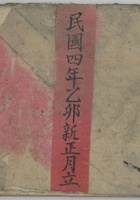 民國四年乙卯新正月立